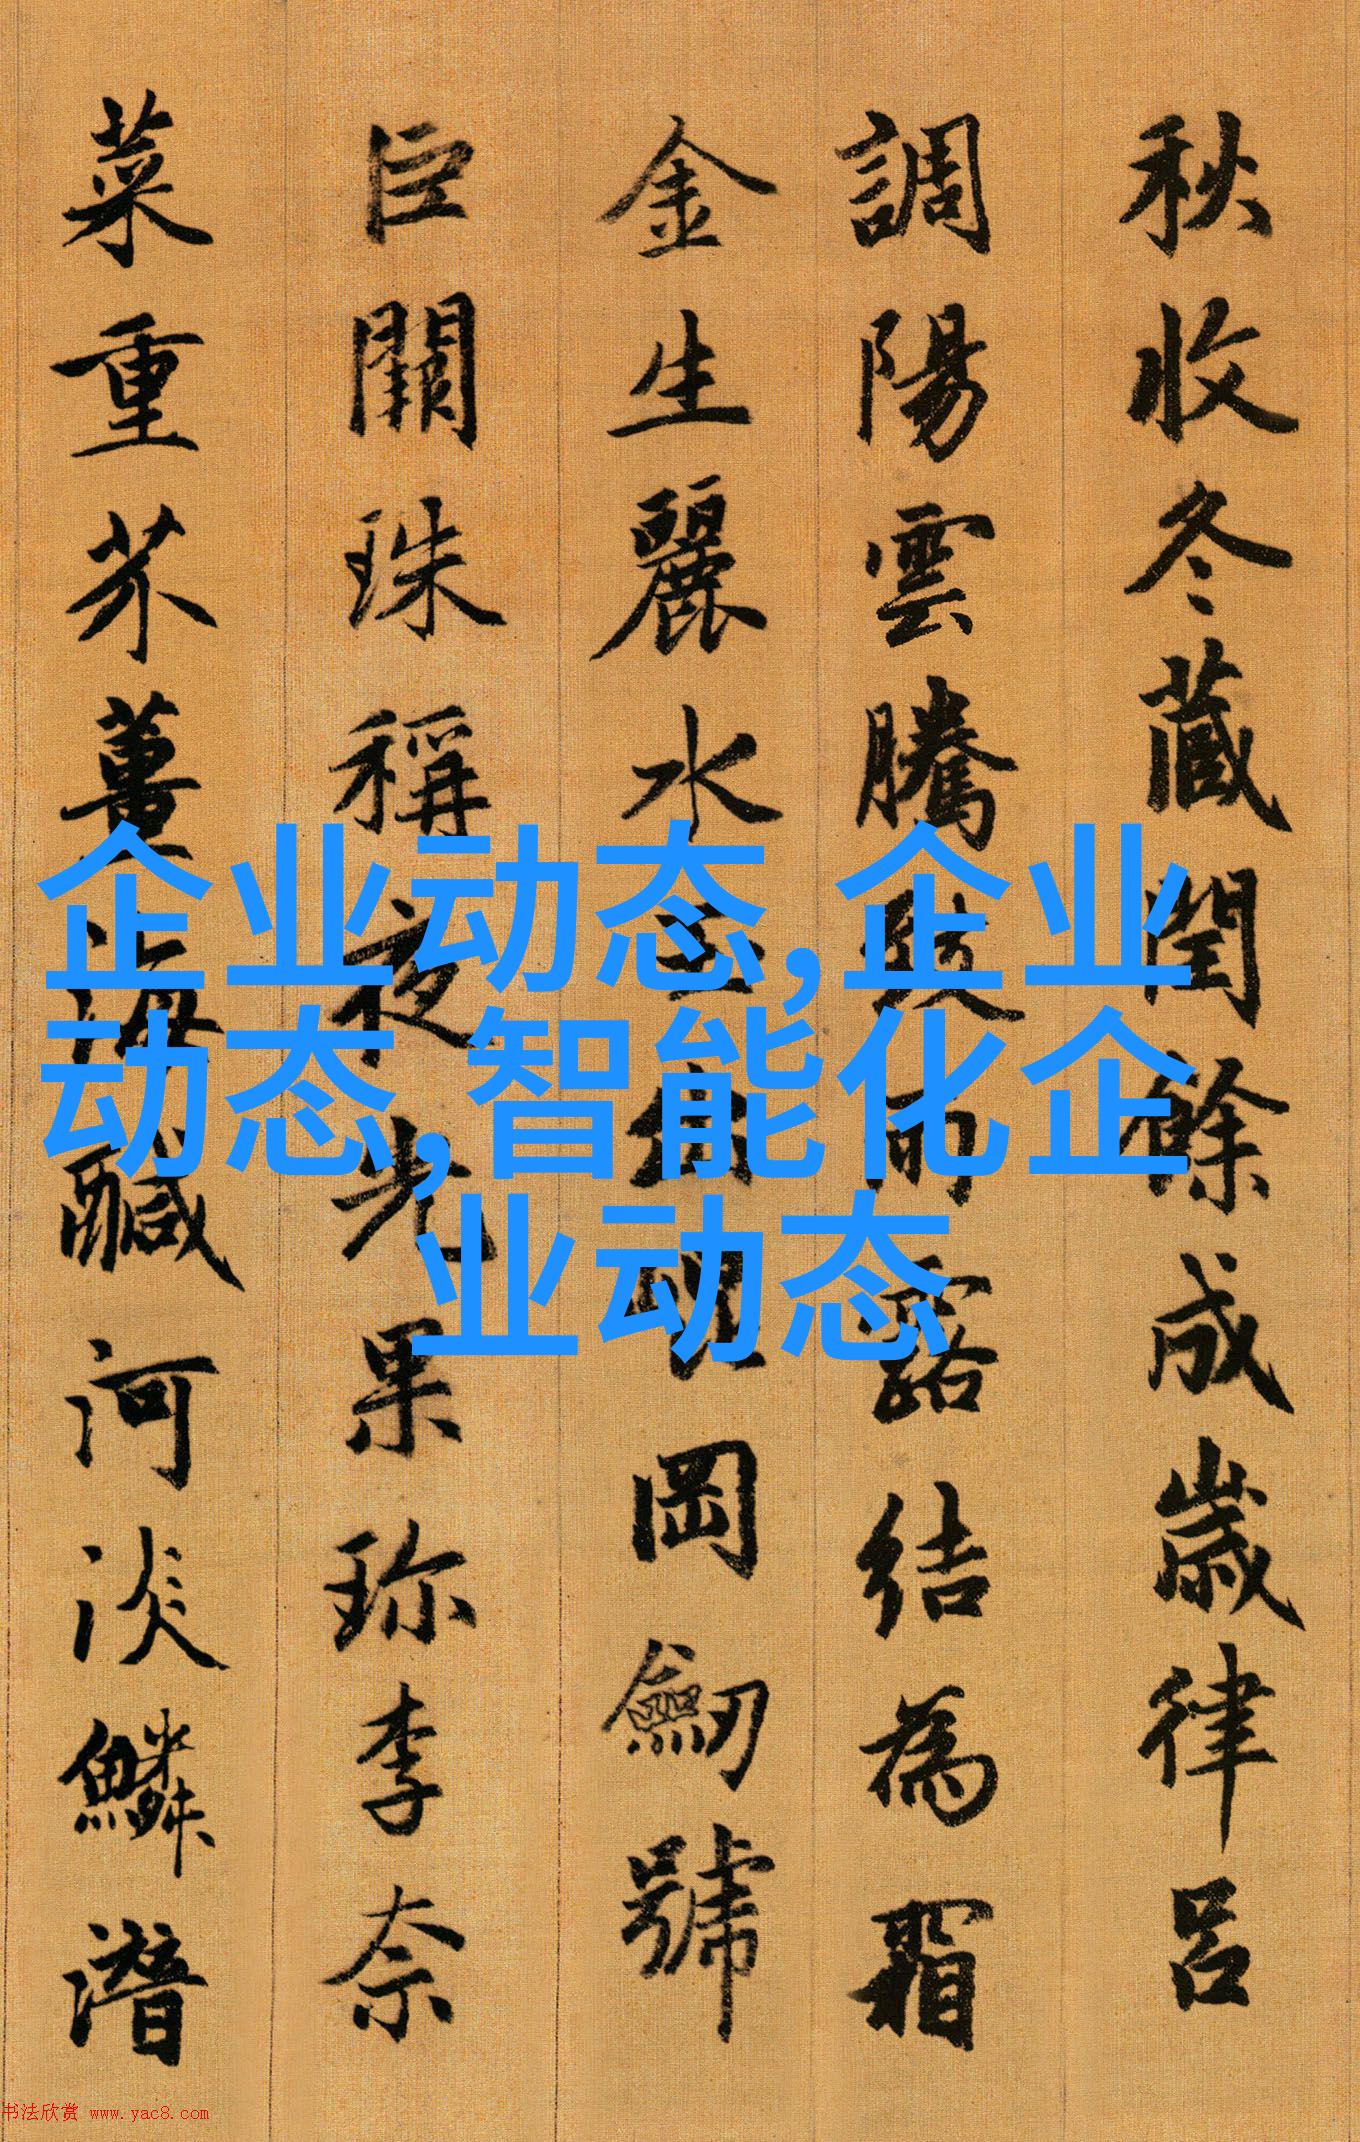 秋收冬藏閏餘成歲律呂
調陽雲騰致雨露結為霜
金生麗水玉出崑岡劒號
巨闕珠稱夜光果珎李奈
菜重芥薑海鹹河淡鱗潛
企业动态,企业
动态,智能化企
业动态
书法欣赏 www.yac8.com